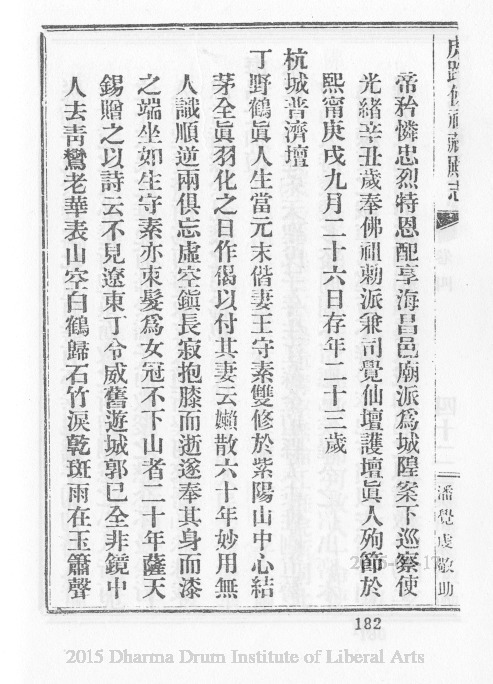 帝矜憐忠烈特恩配享海昌邑廟派爲城隍案下巡察使
光緒辛丑歲奉佛祖勅派兼司覺仙壇護壇眞人殉節於
熙甯庚戌九月二十六日存年二十三歲
杭城普濟壇
丁野鶴眞人生當元末偕妻王守素雙修於紫陽山中心結
茅全眞羽化之日作偈以付其妻云嬾散六十年妙用無
人識順逆兩俱忘虛空鎭長寂抱膝而逝遂奉其身而漆
之端坐如生守素亦束髮爲女冠不下山者二十年薩天
錫贈之以詩云不見遼東丁令威舊遊城郭已全非鏡中
人去靑鸞老華表山空白鶴歸石竹淚乾斑雨在玉簫聲
潘覺虔敬助
182
2015 Dharma Drum Institute of Liberal Arts